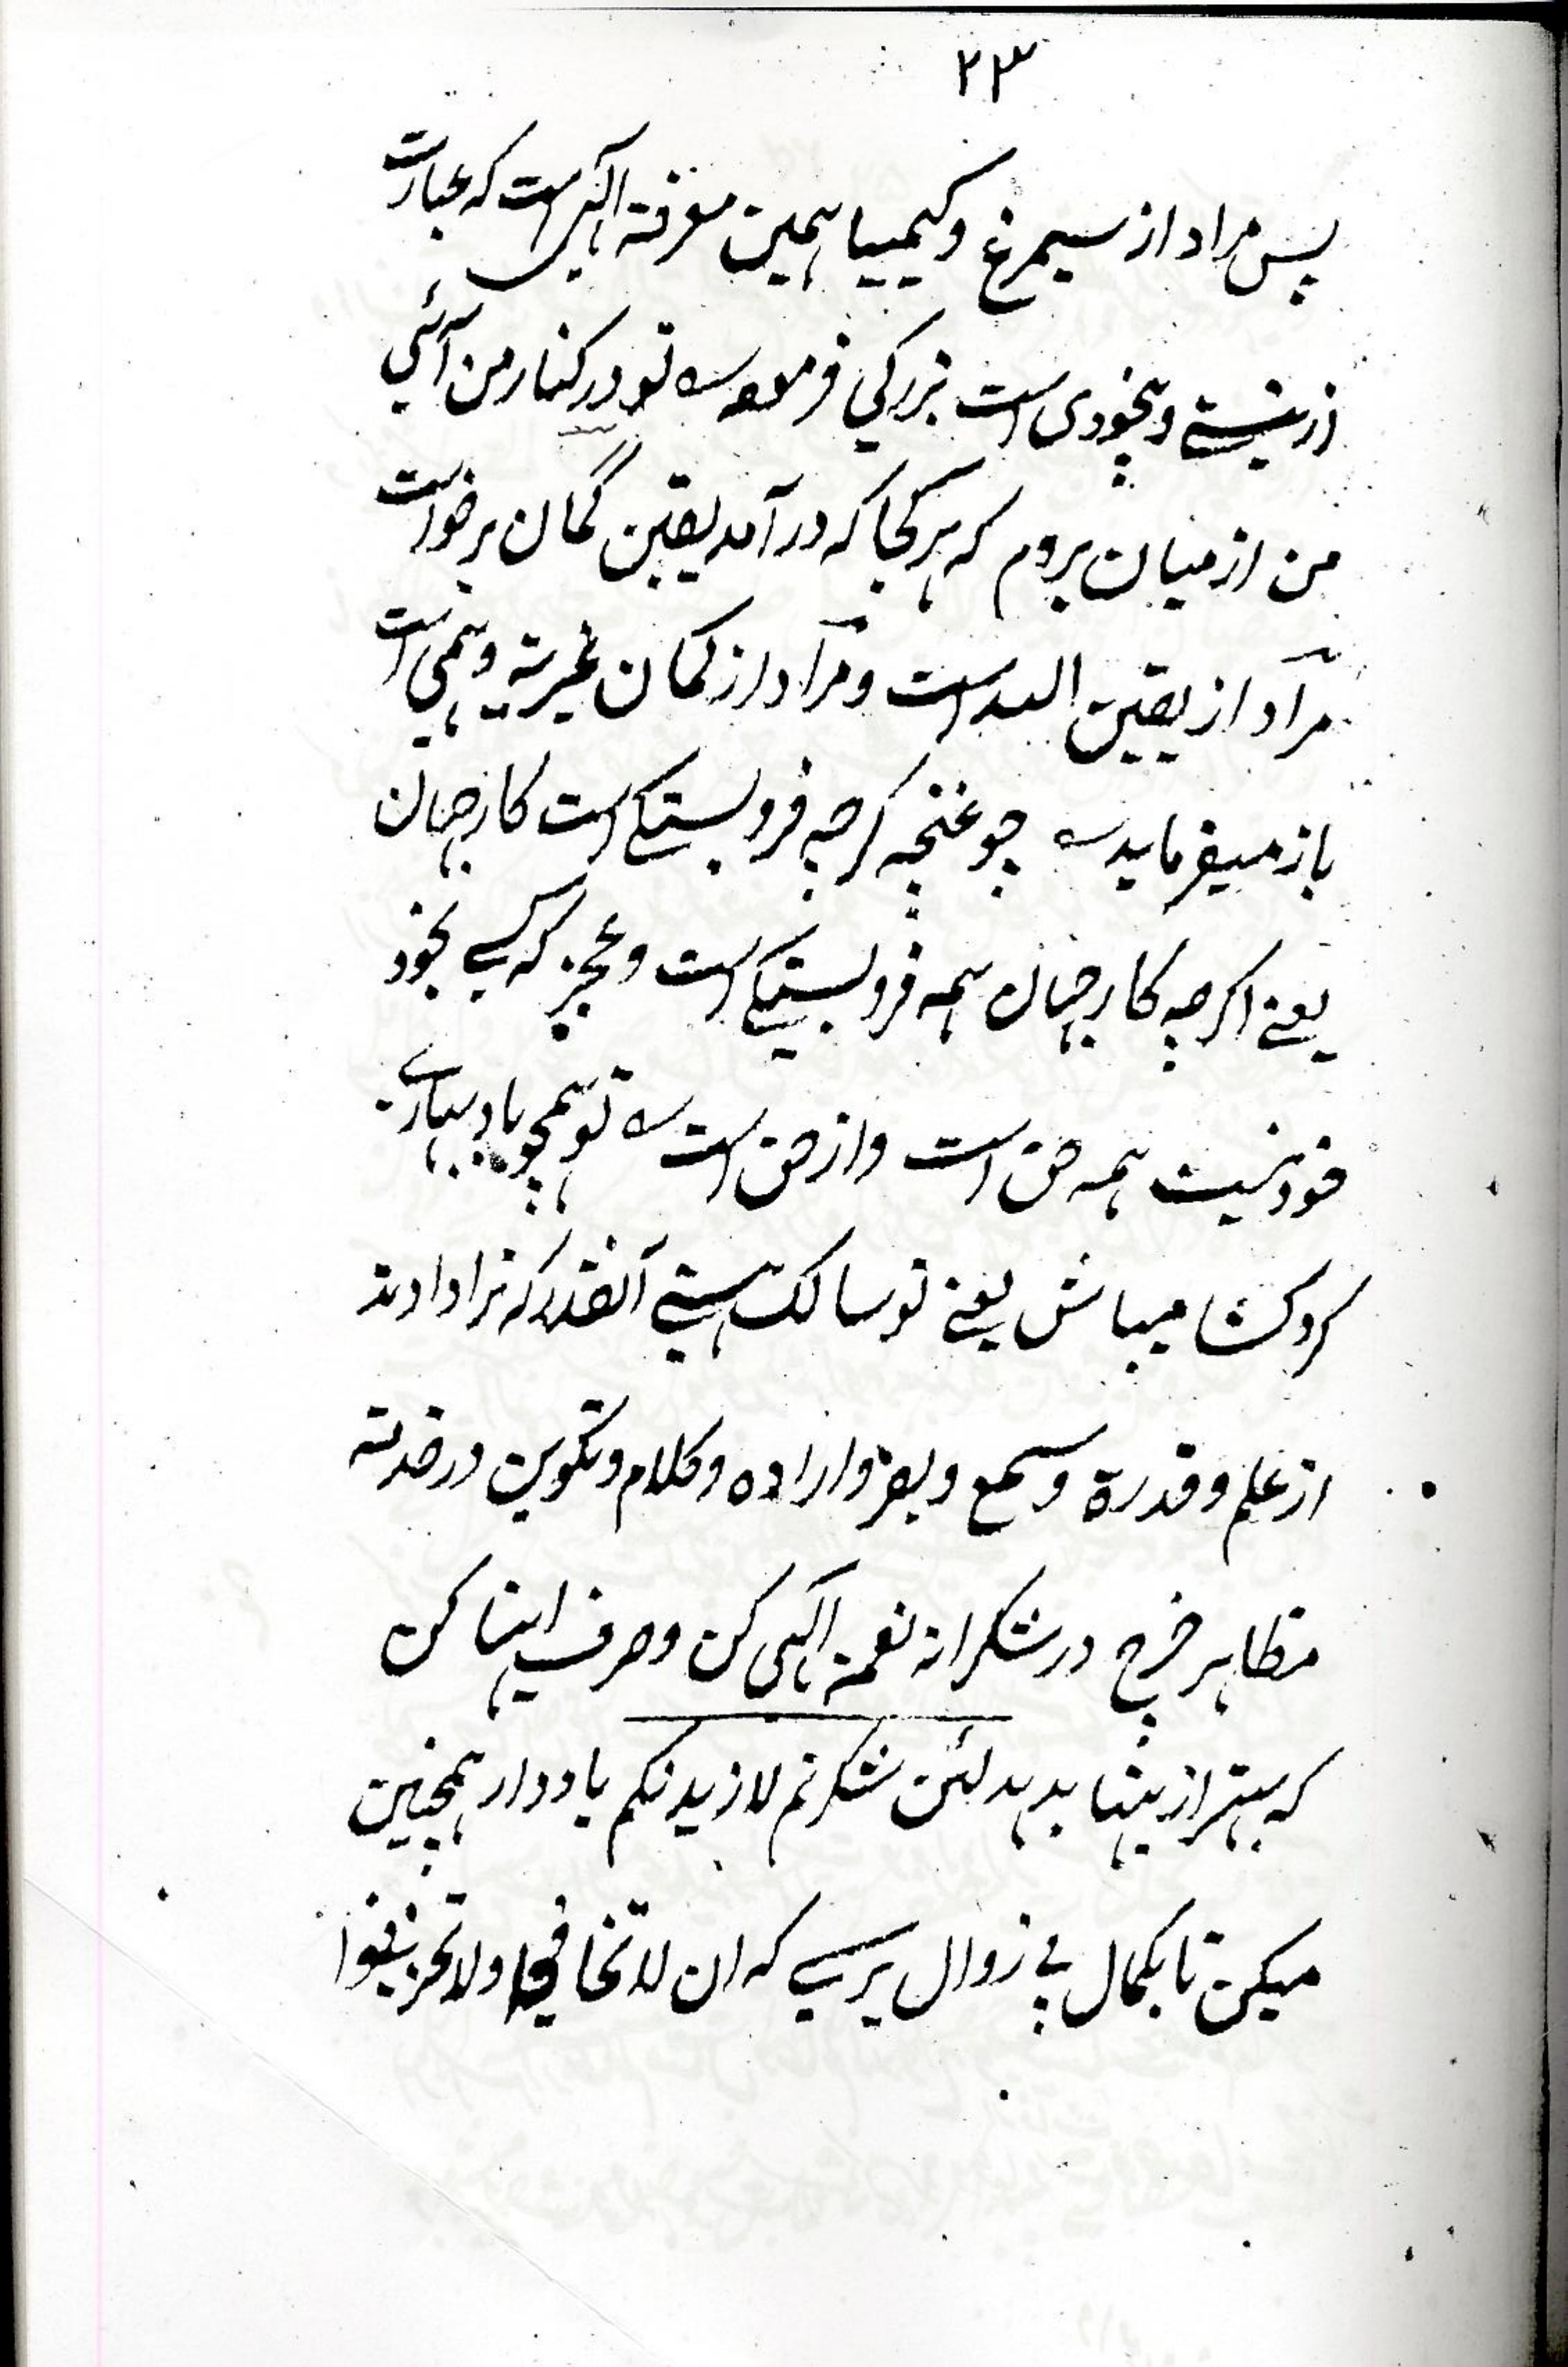 ۲۳
پس مراد از سیمرغ و کیمیا همین معرفة الهی است که عبارت
از نیستے و بیخودی است بزرکی فرموده تو در کنار من آئی
من از میان بروم که هر کجا که در آمد یقین گمان برخواست
مرآد از یقین الله است و مرآد از کمان غیریة وهمی است
باز میفرماید چو غنچه کرچه فروبستکے است کار جهان
یعنے اکرچه کار جهان همه فروبستکے است و عجز که کسے بخود
خود نیست همه حق است و از حق است تو همچو باد بهارے
کره کشا میباش یعنے تو سالک هستے آنقدر که ترا دادند
از علم و قدرة و سمع و بصر و اراده و کلام و تکوین در خدمة
مظاهر خرچ در شکرانه نعمة الهی کن و صرف اینها کن
که بهتر ازینها بدهد لئن شکرتم لازیدنکم یاد دار همچنین
میکن تا بکمال بے زوال برسے که ان لا تخافوا ولا تحزنوا